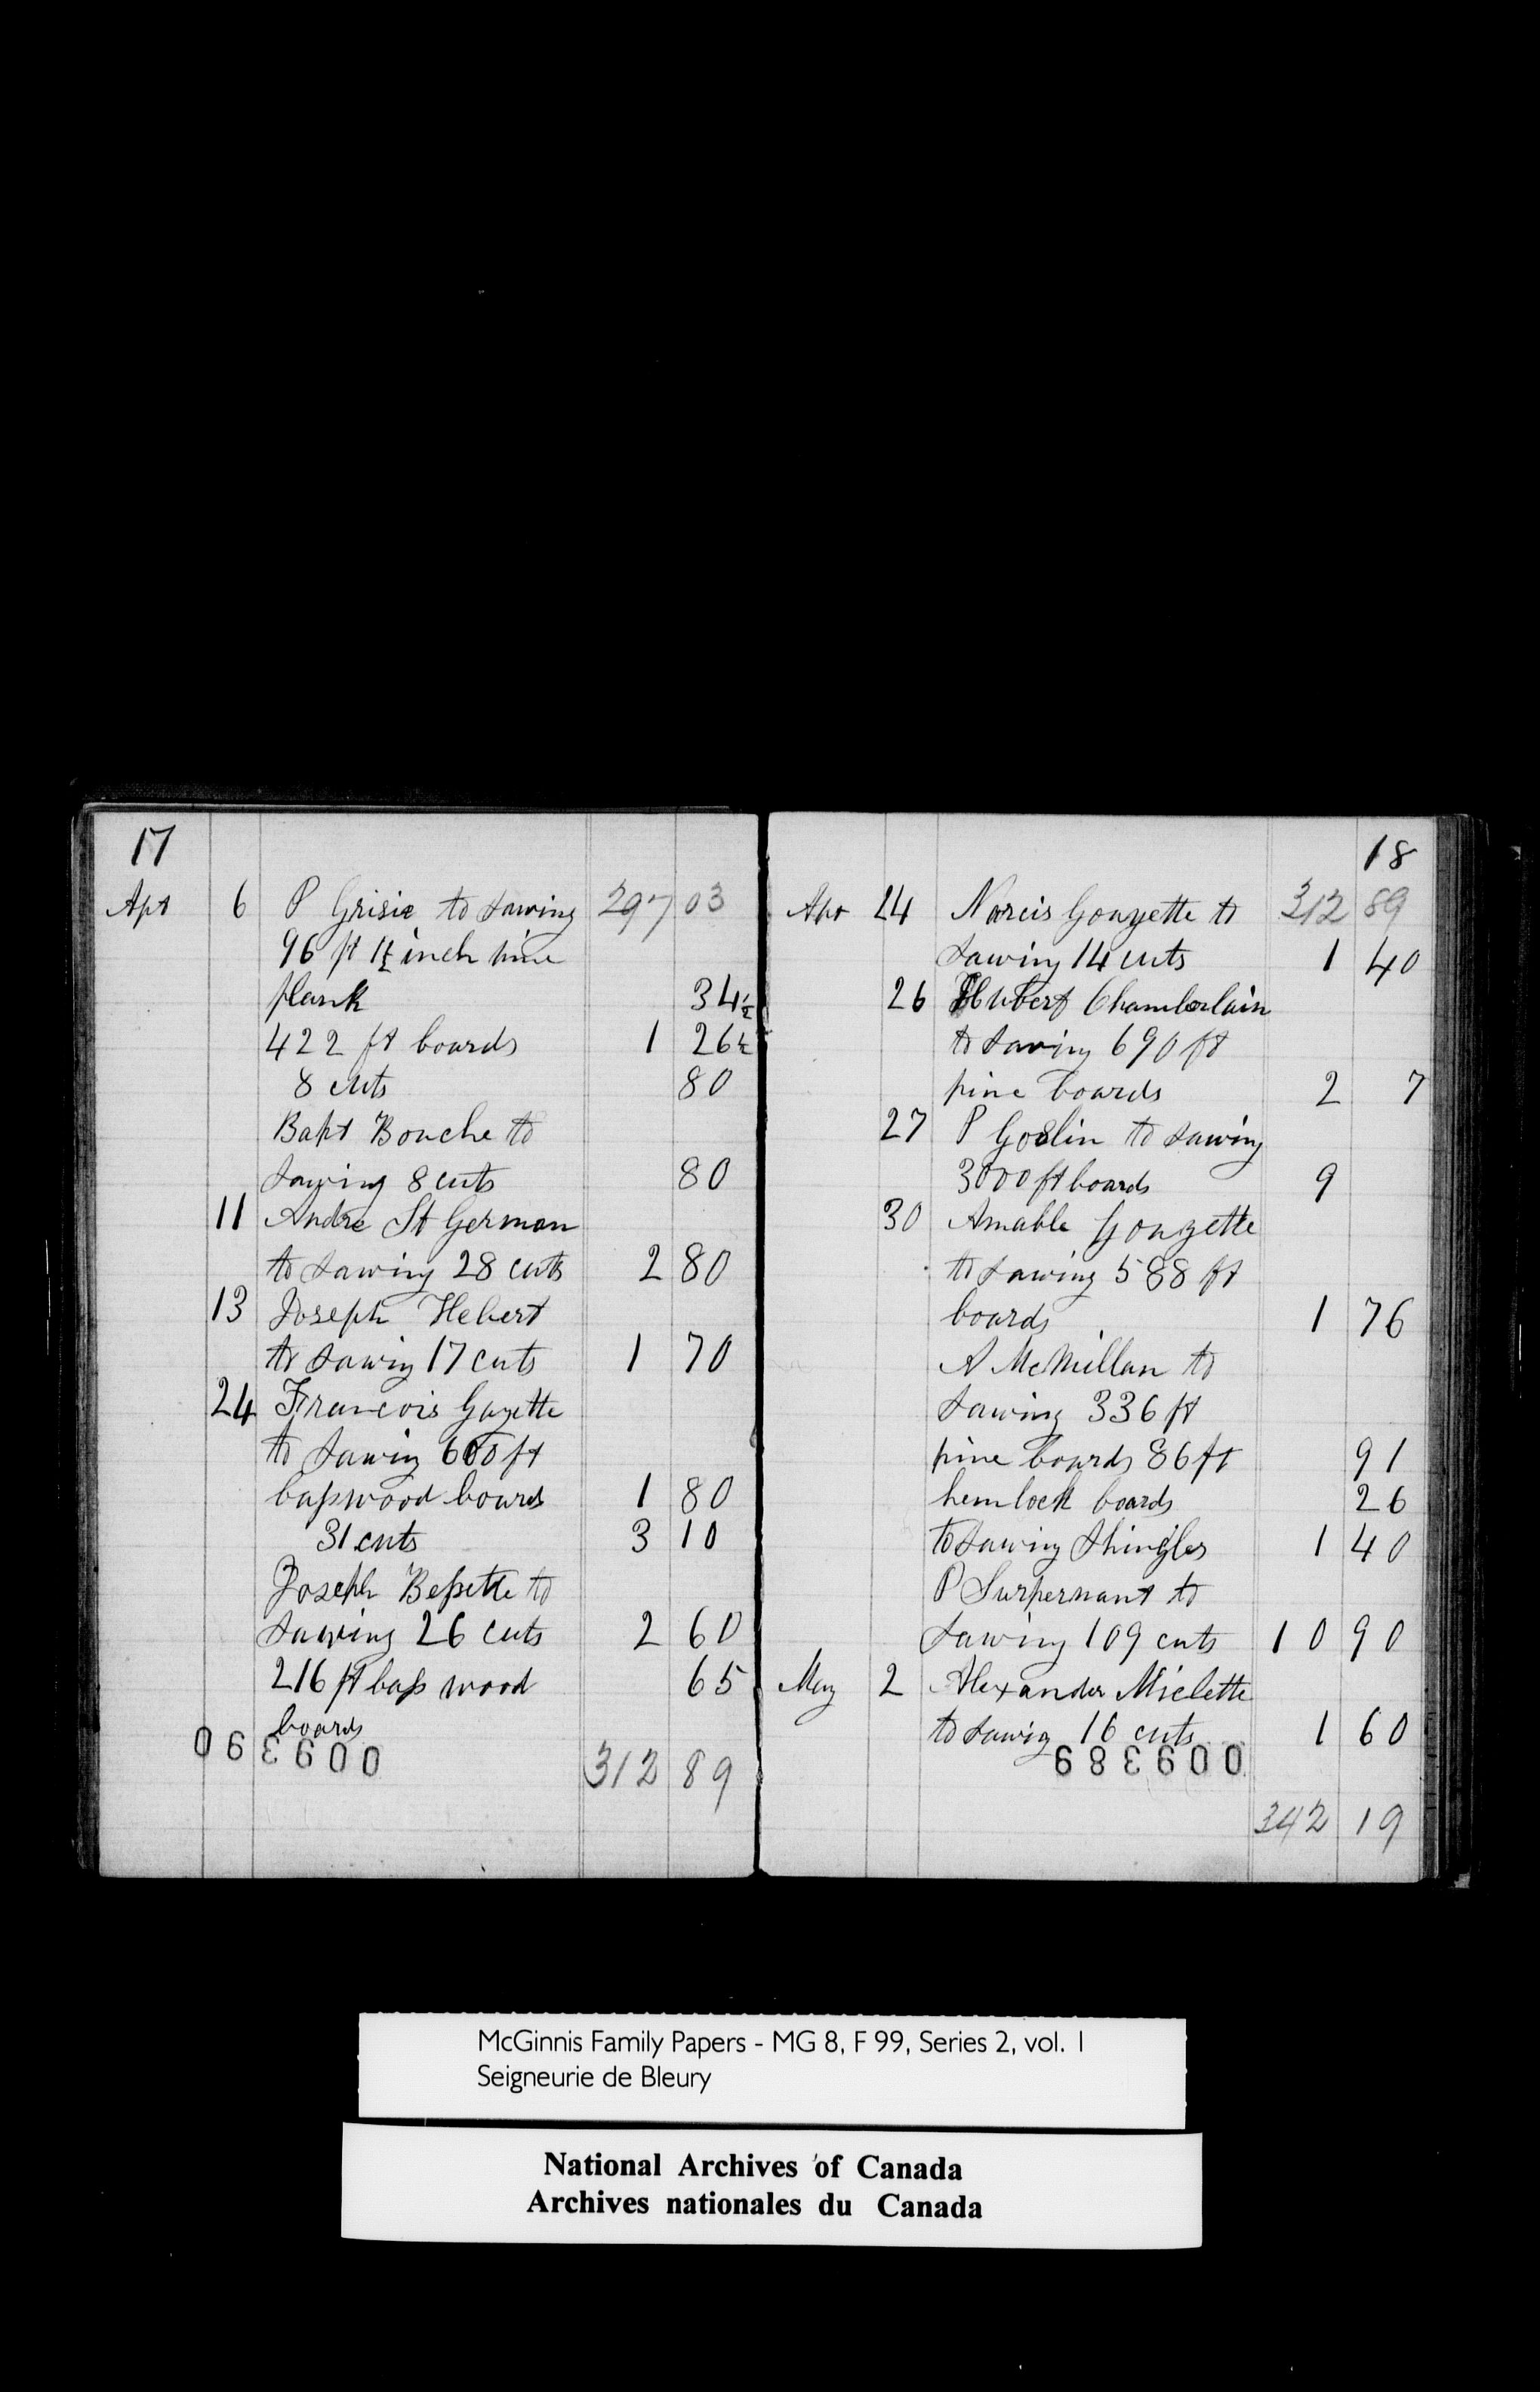 17
Apr 6 P Grisie to sawing 297 03
96 ft 1½ inch pine
plank 34½
422 ft boards 1 26½
8 cuts 80
Bapt Bouche to
sawing 8 cuts 80
11 Andre St German
to sawing 28 cuts 2 80
13 Joseph Hebert
to sawing 17 cuts 1 70
24 Francois Gazette
to sawing 600 ft
basswood boards 1 80
31 cuts 3 10
Joseph Bessette to
sawing 26 cuts 2 60
216 ft bass wood 65
boards
009390
312 89
18
Apr 24 Narcis Gouzette to 312 89
sawing 14 cuts 1 40
26 Hubert Chamberlain
to sawing 690 ft
pine boards 2 7
27 P Goslin to sawing
3000 ft boards 9
30 Amable Gouzette
to sawing 588 ft
boards 1 76
A McMillan to
sawing 336 ft
pine boards 86 ft 91
hemlock boards 26
to sawing shingles 1 40
P Surpernant to
sawing 109 cuts 10 90
May 2 Alexander Miclette
to sawing 16 cuts 1 60
009389
342 19
McGinnis Family Papers - MG 8, F 99, Series 2, vol. 1
Seigneurie de Bleury
National Archives of Canada
Archives nationales du Canada